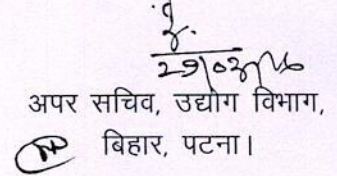 29/02/16
अपर सचिव, उद्योग विभाग,
बिहार, पटना।